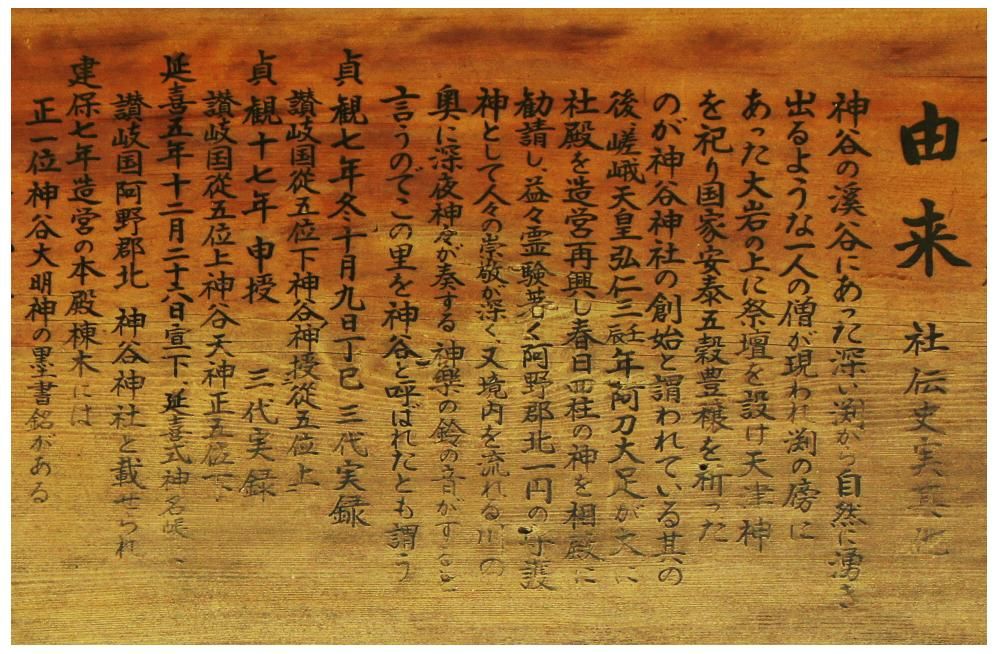 由来 社伝史実其他
神谷の渓谷にあった深い渕から自然に湧き
出るような一人の僧が現われ渕の傍に
あった大岩の上に祭壇を設け天津神
を祀り国家安泰五穀豊穣を祈った
のが神谷神社の創始と謂われている其の
後嵯峨天皇弘仁三壬辰年阿刀大足が文に
社殿を造営再興し春日四柱の神を相殿に
勧請し、益々霊験著く阿野郡北一円の守護
神として人々の崇敬が深く、又境内を流れる川の
奥に深夜神々が奏する 神樂の鈴の音がすると
言うのでこの里を神谷と呼ばれたとも謂う
貞観七年冬十月九日丁巳 三代実録
讃岐国従五位下神谷神授従五位上
貞観十七年 申授 三代実録
讃岐国従五位上神谷天神正五位下
延喜五年十二月二十六日宣下、延喜式神名帳、
讃岐国阿野郡北 神谷神社と載せられ
建保七年造営の本殿棟木には
正一位神谷大明神の墨書銘がある